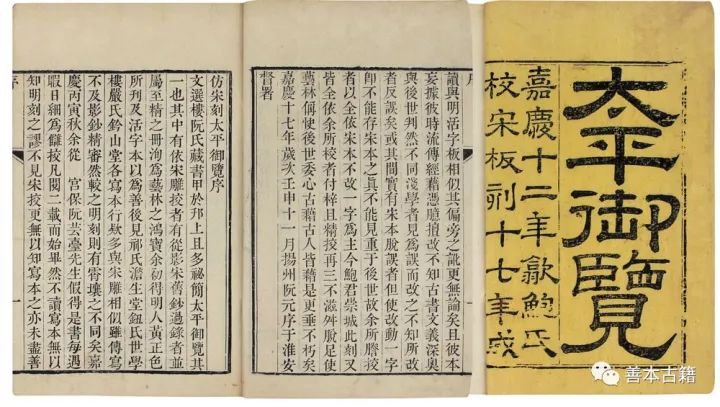 太平御覽
嘉慶十二年歙鮑氏
校宋板刻十七年成
序
讀與明活字板相似其偏旁之訛更無論矣且彼本
妄據彼時流傳經籍憑臆擅改不知古書文義深奧
與後世判然不同淺學者見為誤而改之不知所改
者反誤矣或其間實有宋本脫誤者但使改動一字
即不能存宋本之真不能見重于後世故余所謄挍
者以全依宋本不改一字為主今鮑君崇城此刻又
皆全依余所挍者付梓且精挍再三不滋舛脫足使
藝林稱快後世委心古籍古人皆藉是更垂不朽矣
嘉慶十七年歲次壬申十一月揚州阮元序于淮安
督署
仿宋刻太平御覽序
文選樓阮氏藏書甲於邗上且多祕簡太平御覽其
一也其中有依宋雕挍者有從影宋舊鈔過錄者並
屬至精之冊洵為藝林之鴻寶余初得明人黃正色
所刊及活字本以為善後見祁氏澹生堂鈕氏世學
樓嚴氏鈐山堂各寫本行款多與宋雕相似雖傳寫
不及影鈔精審然較之明刻則有霄壤之不同矣嘉
慶丙寅秋余從 宮保阮芸臺先生假得是書每遇
暇日細為讎挍凡閱二載而始畢然不讀寫本無以
知明刻之謬不見宋挍更無以知寫本之亦未盡善
序 一
善本古籍